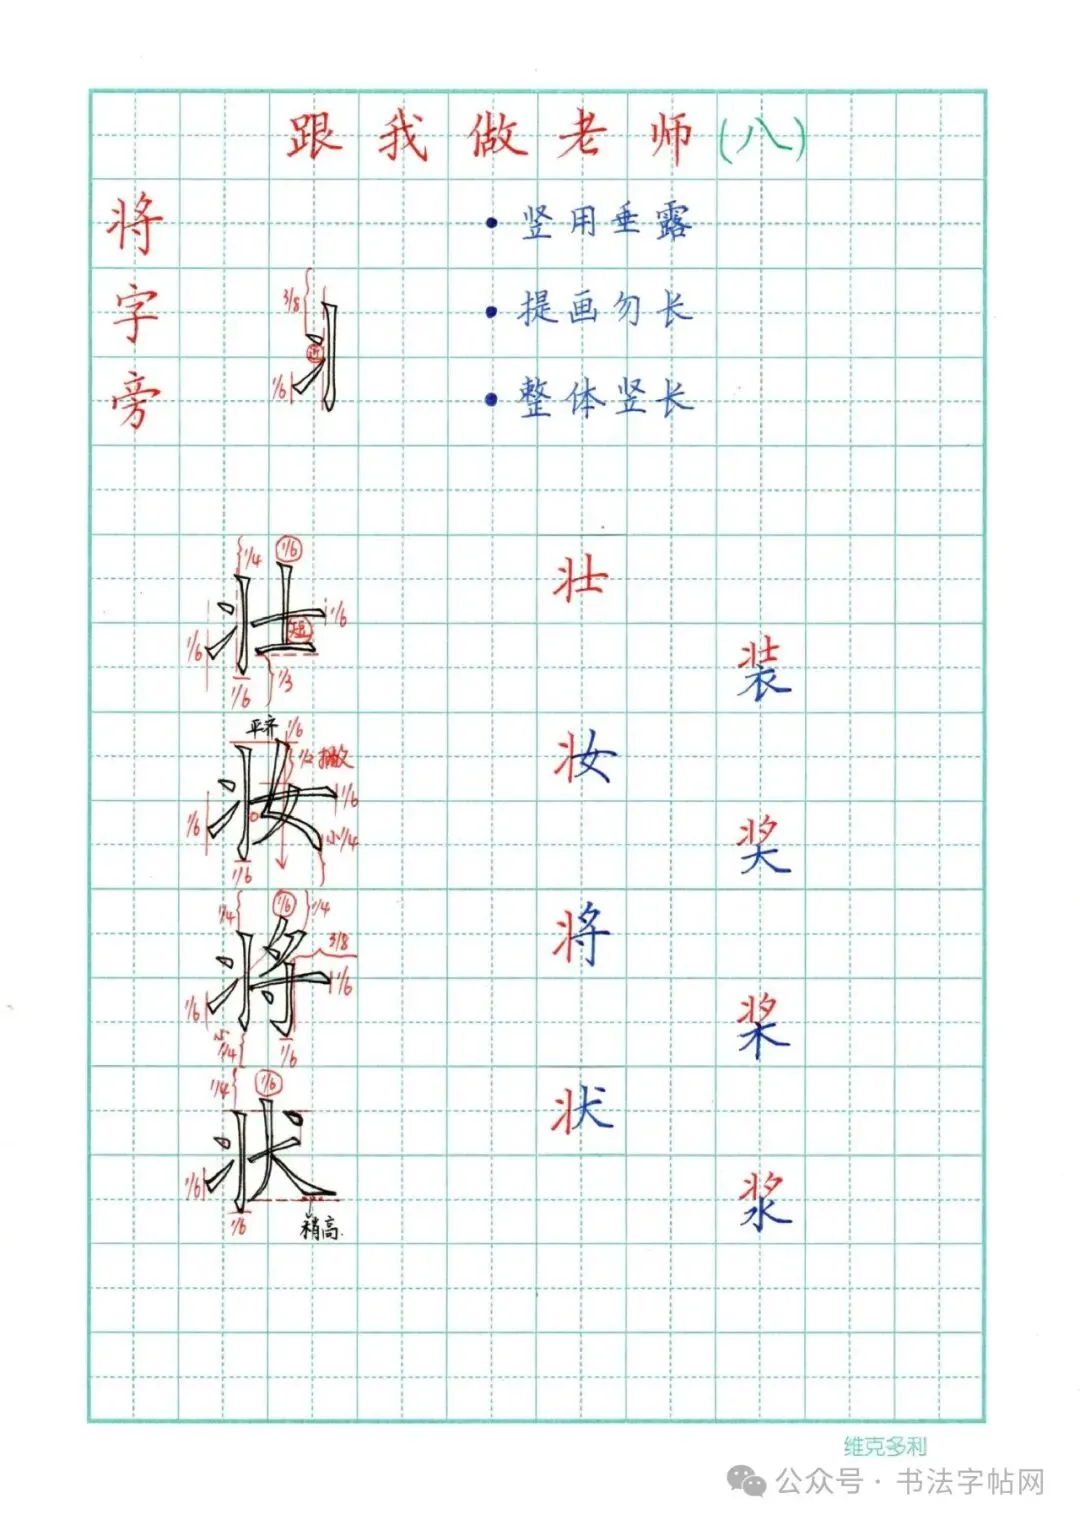 跟我做老师(八)
将字旁
• 竖用垂露
• 提画勿长
• 整体竖长
3/8
近
1/6
1/4 1/6
1/6
短
1/6
1/6 1/3
壮
装
平齐 1/6
1/2 撇
1/6
1/6
小1/4
1/6
妆
奖
1/4 1/6 1/4
3/8
1/6
1/6
1/4
1/6
将
桨
1/4 1/6
1/6
1/6
稍高
状
浆
维克多利
公众号·书法字帖网